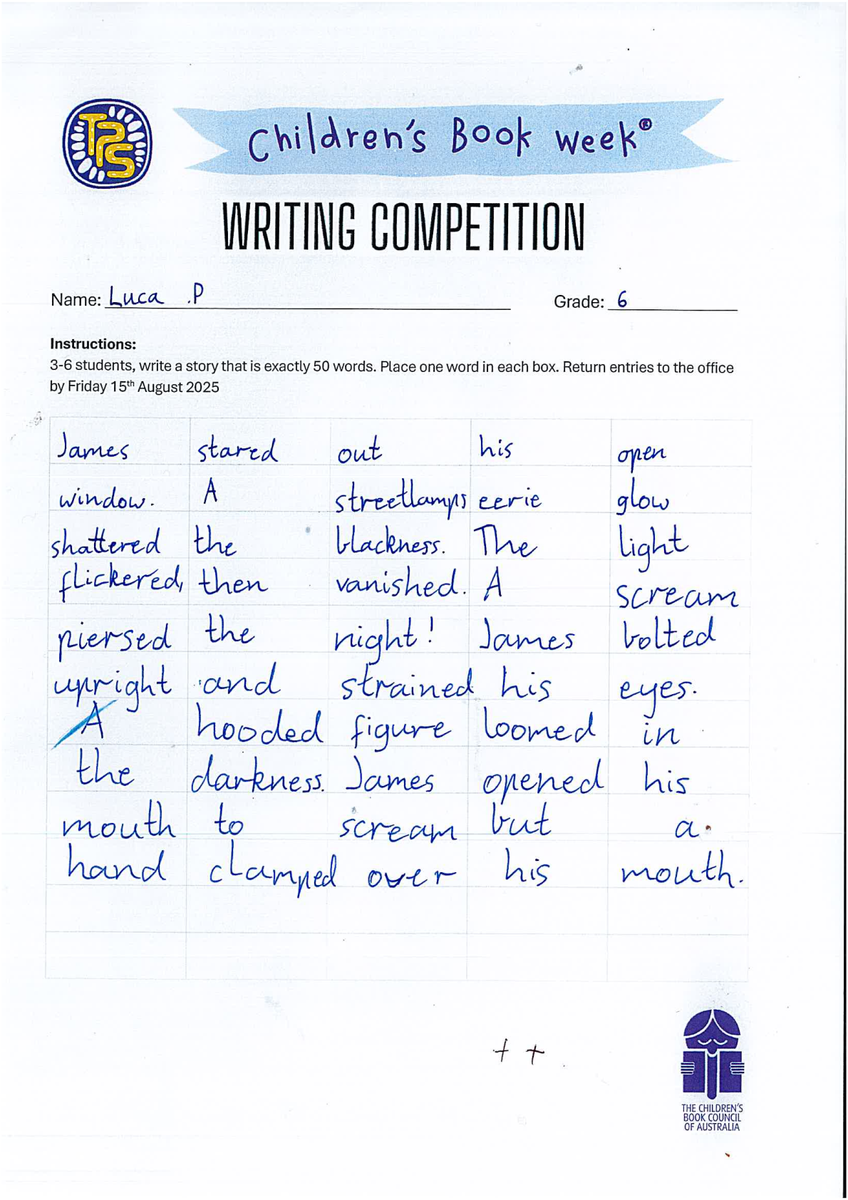 TPS
Children's Book Week®
WRITING COMPETITION
Name: Luca .P Grade: 6
Instructions:
3-6 students, write a story that is exactly 50 words. Place one word in each box. Return entries to the office
by Friday 15th August 2025
James stared out his open
window. A streetlamps eerie glow
shattered the blackness. The light
flickered, then vanished. A scream
piersed the night! James bolted
upright and strained his eyes.
A hooded figure loomed in
the darkness. James opened his
mouth to scream but a
hand clamped over his mouth.
++
THE CHILDREN'S
BOOK COUNCIL
OF AUSTRALIA